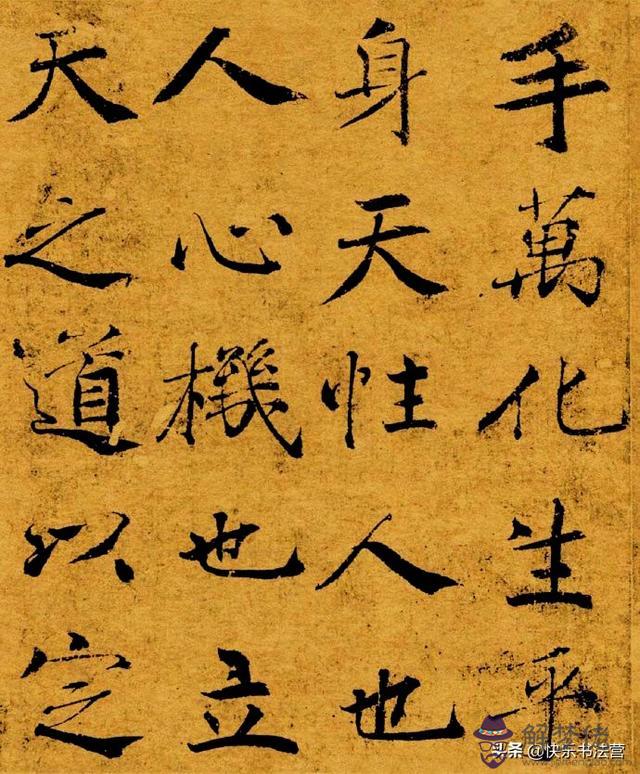 手萬化生乎
身天性人也
人心機也立
天之道以定
解梦猪
头条 @快乐书法营